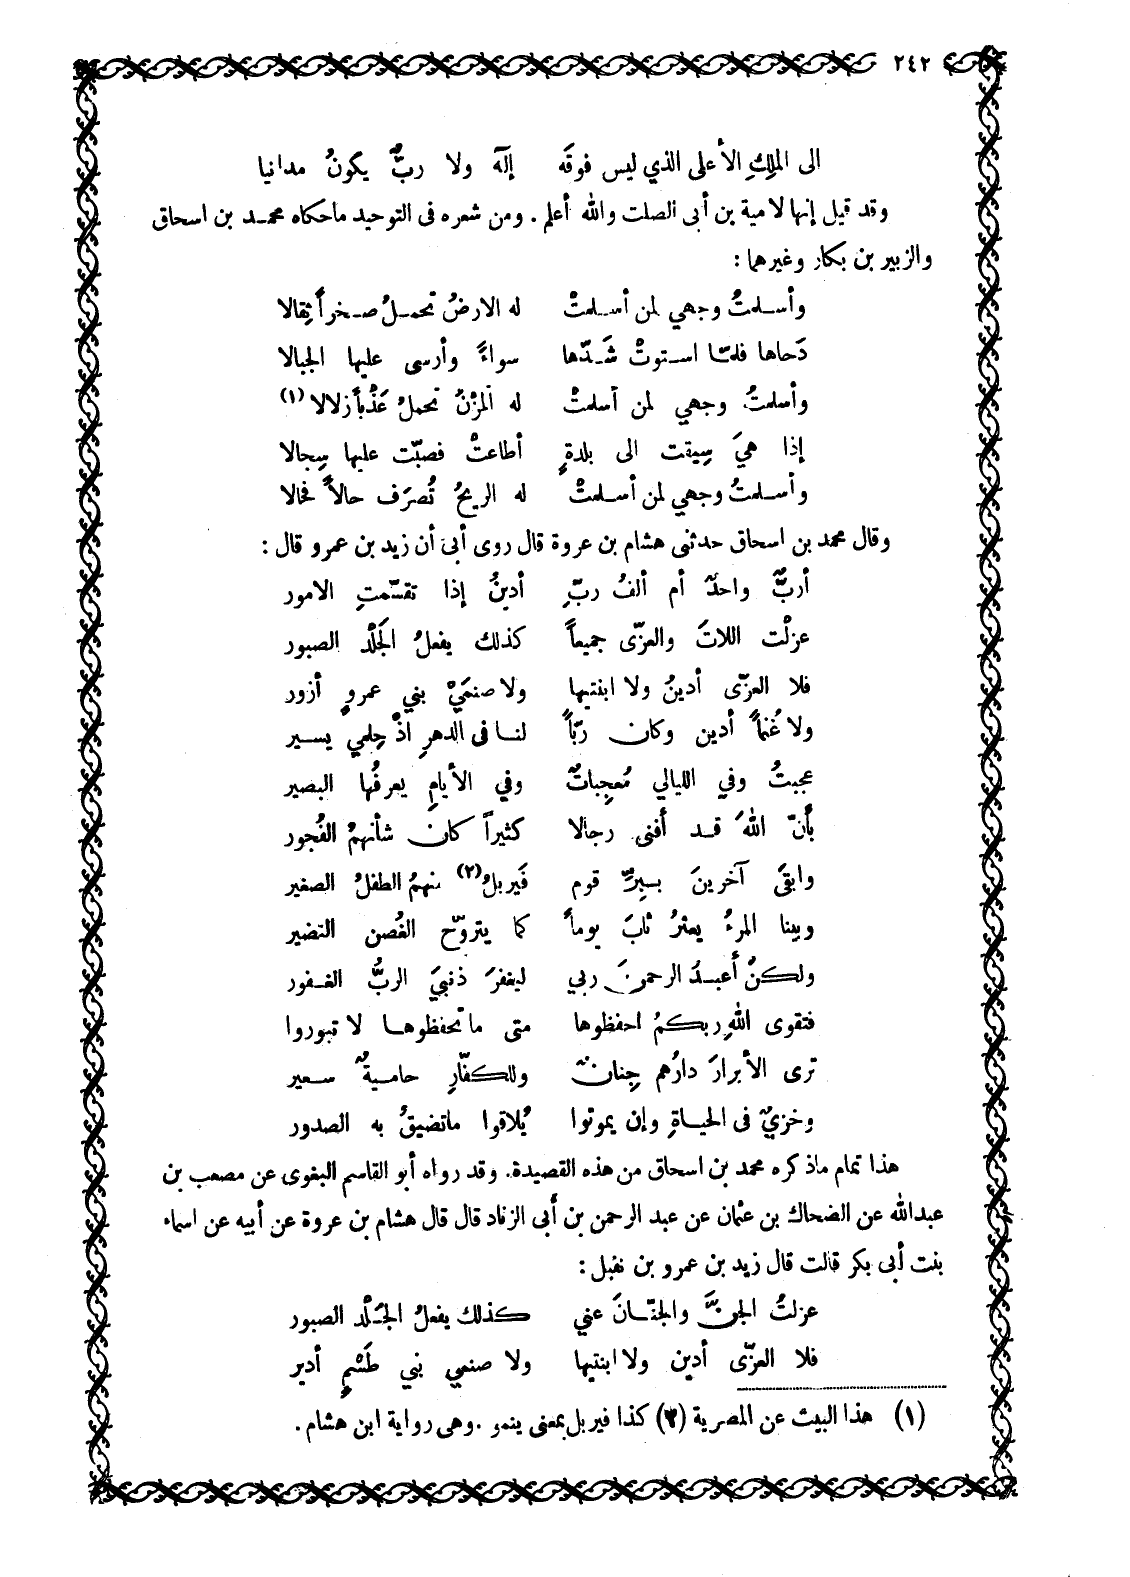 ٢٤٢
الى الملِكِ الأعلى الذي ليس فوقَه إلَه ولا ربٌّ يكونُ مدانيا
وقد قيل إنها لامية بن أبى الصلت والله أعلم . ومن شعره فى التوحيد ماحكاه محمد بن اسحاق
والزبير بن بكار وغيرهما :
وأسلمتُ وجهي لمن أسلمتْ له الارضُ تحملُ صخراً ثِقالا
دَحاها فلمّا استوتْ شَدّها سواءً وأرسى عليها الجبالا
وأسلمتُ وجهي لمن أسلمتْ له المزْنُ تحملُ عَذْباً زلالا (١)
إذا هيَ سِيقت الى بلدةٍ أطاعتْ فصبّت عليها سِجالا
وأسلمتُ وجهي لمن أسلمتْ له الريحُ تُصرَف حالاً فحالا
وقال محمد بن اسحاق حدثنى هشام بن عروة قال روى أبى أن زيد بن عمرو قال :
أربٌّ واحدٌ أم ألفُ ربّ أدينُ إذا تقسّمتِ الامور
عزلْت اللاتَ والعزّى جميعاً كذلك يفعلُ الجَلْد الصبور
فلا العزّى أدينُ ولا ابنتيها ولا صنمَيْ بني عمروٍ أزور
ولا غُنماً أدين وكان ربّاً لنا فى الدهرِ اذْ حِلمي يسير
عجبتُ وفي الليالي مُعجِباتٌ وفي الأيامِ يعرفُها البصير
بأنّ اللهَ قد أفنى رجالا كثيراً كان شأنهمُ الفُجور
وابقىَ آخرينَ ببِرِّ قوم فَيربلُ (٢) منهمُ الطفلُ الصغير
وبينا المرءُ يعثرُ ثابَ يوماً كما يتروّح الغُصن النضير
ولكنْ أعبدُ الرحمنَ ربي ليغفرَ ذنبيَ الربُّ الغفور
فتقوى اللهِ ربكمُ احفظوها متى ما تحفظوها لا تبوروا
ترى الأبرارَ دارُهم جِنانٌ وللكفّارِ حاميةٌ سعير
وخزيٌ فى الحياةِ وإن يموتوا يُلاقوا ماتضيقُ به الصدور
هذا تمام ماذكره محمد بن اسحاق من هذه القصيدة. وقد رواه أبو القاسم البغوى عن مصعب بن
عبدالله عن الضحاك بن عثمان عن عبد الرحمن بن أبى الزناد قال قال هشام بن عروة عن أبيه عن اسماء
بنت أبى بكر قالت قال زيد بن عمرو بن نفيل :
عزلتُ الجنَّ والجنّانَ عني كذلك يفعلُ الجَلْد الصبور
فلا العزّى أدين ولا ابنتيها ولا صنمي بني طَسْمٍ أدير
(١) هذا البيت عن المصرية (٢) كذا فيربل بمعنى ينمو . وهى رواية ابن هشام .